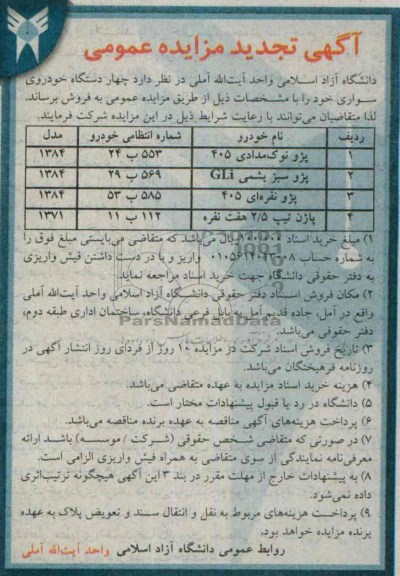 آگهی تجدید مزایده عمومی
دانشگاه آزاد اسلامی واحد آیت‌الله آملی در نظر دارد چهار دستگاه خودروی
سواری خود را با مشخصات ذیل از طریق مزایده عمومی به فروش برساند.
لذا متقاضیان می‌توانند با رعایت شرایط ذیل در این مزایده شرکت فرمایند.
ردیف نام خودرو شماره انتظامی خودرو مدل
۱ پژو نوک‌مدادی ۴۰۵ ۵۵۳ ب ۲۴ ۱۳۸۴
۲ پژو سبز یشمی GLi ۵۶۹ ب ۲۹ ۱۳۸۴
۳ پژو نقره‌ای ۴۰۵ ۵۸۵ ب ۵۳ ۱۳۸۴
۴ پاژن تیپ ۲/۵ هفت نفره ۱۱۲ ب ۱۱ ۱۳۷۱
۱) مبلغ خرید اسناد ریال می‌باشد که متقاضی می‌بایستی مبلغ فوق را
به شماره حساب واریز و با در دست داشتن فیش واریزی
به دفتر حقوقی دانشگاه جهت خرید اسناد مراجعه نماید.
۲) مکان فروش اسناد دفتر حقوقی دانشگاه آزاد اسلامی واحد آیت‌الله آملی
واقع در آمل، جاده قدیم آمل به بابل فرعی دانشگاه، ساختمان اداری طبقه دوم،
دفتر حقوقی می‌باشد.
ParsNamadData
۳) تاریخ فروش اسناد شرکت در مزایده ۱۰ روز از فردای روز انتشار آگهی در
روزنامه فرهیختگان می‌باشد.
۴) هزینه خرید اسناد مزایده به عهده متقاضی می‌باشد.
۵) دانشگاه در رد یا قبول پیشنهادات مختار است.
۶) پرداخت هزینه‌های آگهی مناقصه به عهده برنده مناقصه می‌باشد.
۷) در صورتی که متقاضی شخص حقوقی (شرکت / موسسه) باشد ارائه
معرفی‌نامه نمایندگی از سوی متقاضی به همراه فیش واریزی الزامی است.
۸) به پیشنهادات خارج از مهلت مقرر در بند ۳ این آگهی هیچگونه ترتیب‌اثری
داده نمی‌شود.
۹) پرداخت هزینه‌های مربوط به نقل و انتقال سند و تعویض پلاک به عهده
برنده مزایده خواهد بود.
روابط عمومی دانشگاه آزاد اسلامی واحد آیت‌الله آملی